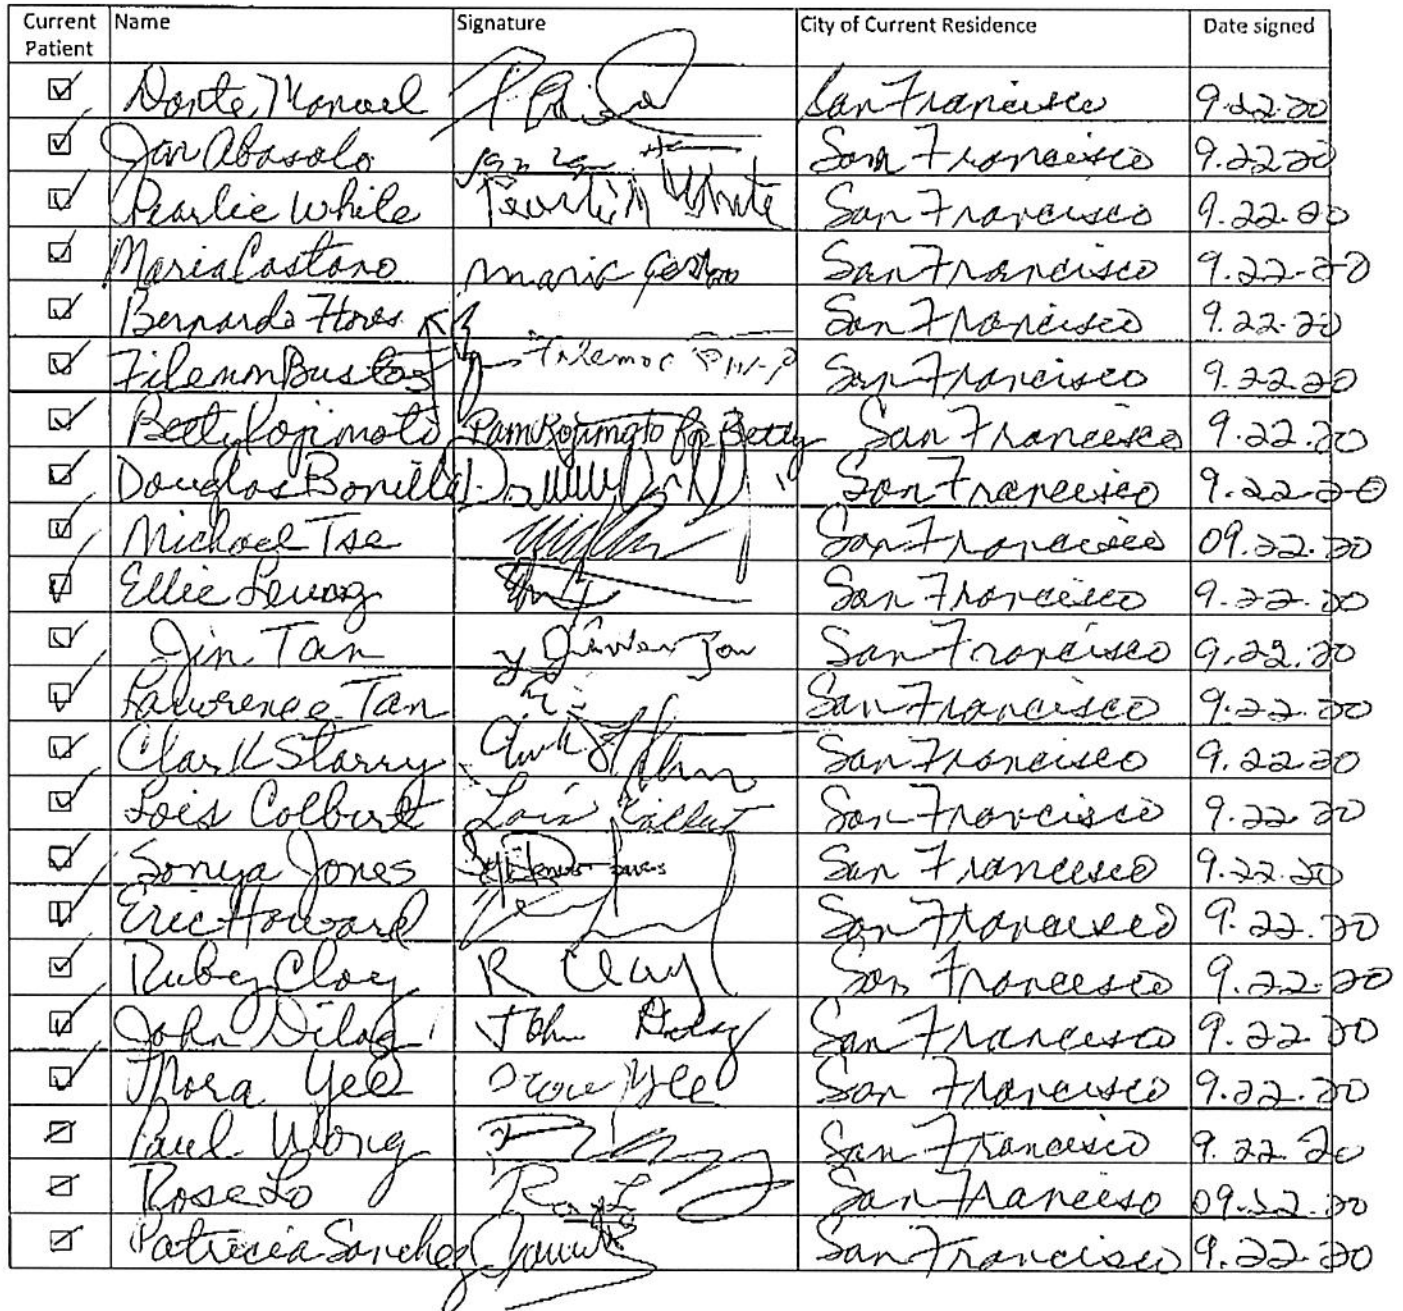 Current Patient Name Signature City of Current Residence Date signed
Donte Manuel San Francisco 9.22.20
Jan Abasolo San Francisco 9.22.20
Pearlie White Pearlie White San Francisco 9.22.20
Maria Castano Maria Castano San Francisco 9.22.20
Bernardo Flores San Francisco 9.22.20
Filemon Bustos Filemon San Francisco 9.22.20
Betty Kojimoto Pam Kojimoto for Betty San Francisco 9.22.20
Douglas Bonilla San Francisco 9.22.20
Michael Tse San Francisco 09.22.20
Ellie Leung San Francisco 9.22.20
Jin Tan San Francisco 9.22.20
Lawrence Tan San Francisco 9.22.20
Clark Starry San Francisco 9.22.20
Lois Colbert Lois Colbert San Francisco 9.22.20
Sonya Jones San Francisco 9.22.20
Eric Howard San Francisco 9.22.20
Ruby Clay R Clay San Francisco 9.22.20
John Dilag John San Francisco 9.22.20
Thora Yee Yee San Francisco 9.22.20
Paul Wong San Francisco 9.22.20
Rose Lo San Franciso 09.22.20
Patricia Sanchez San Francisco 9.22.20